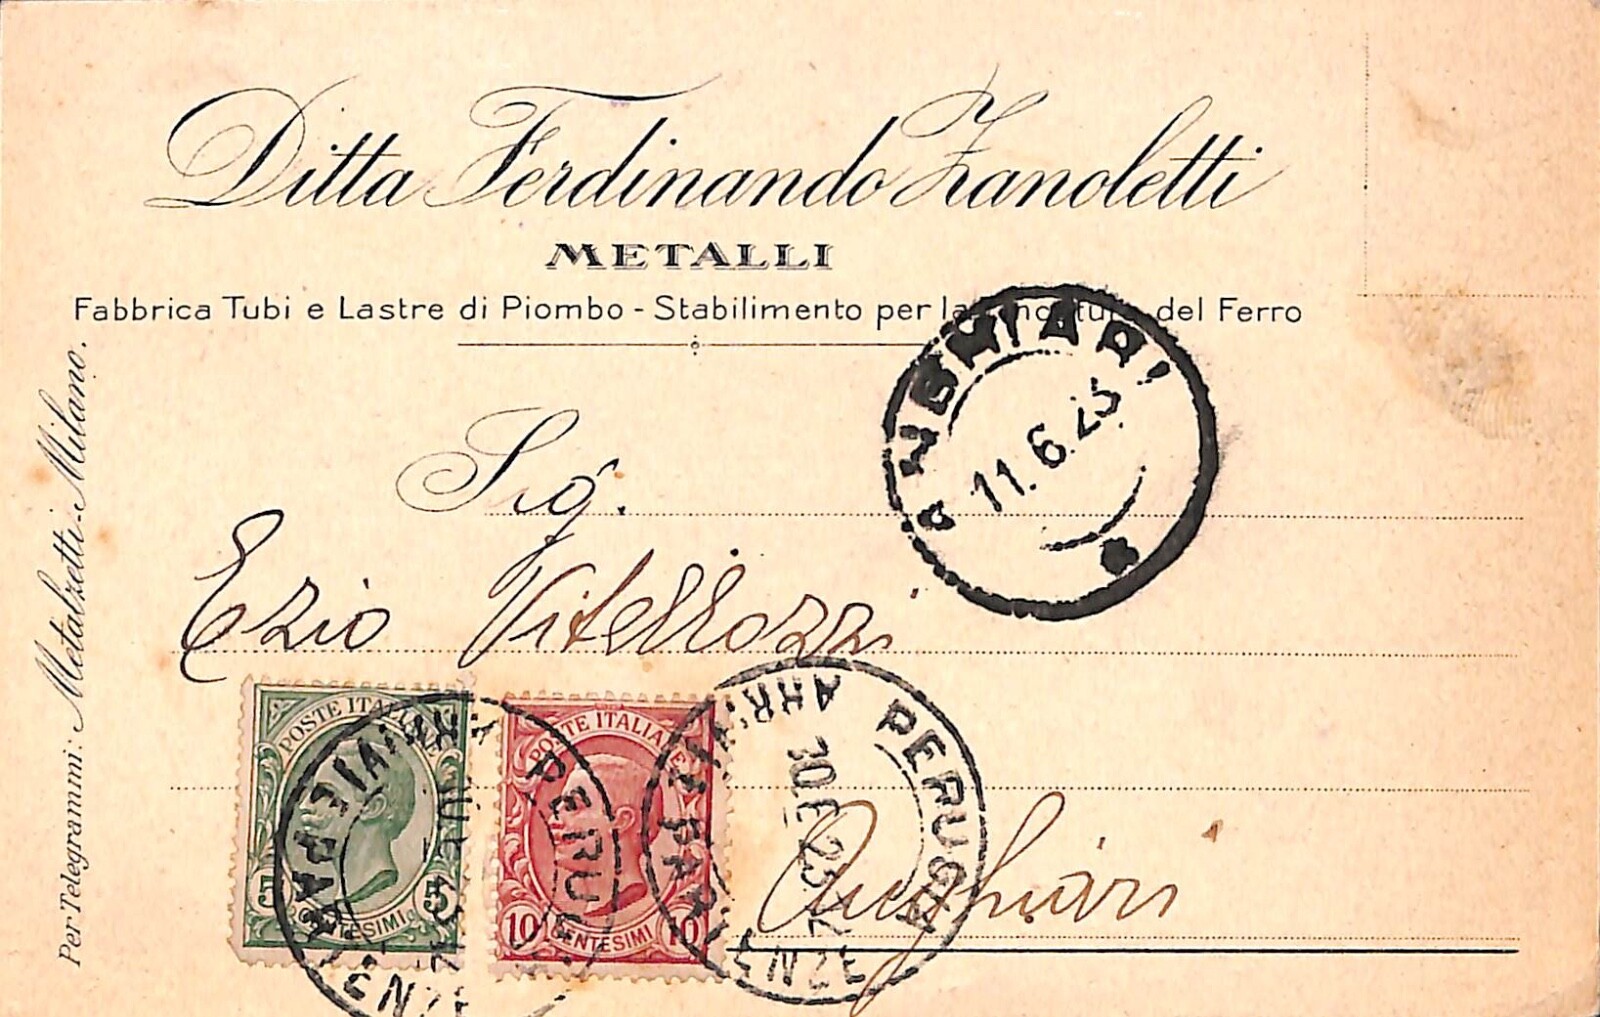 Ditta Ferdinando Zanoletti
METALLI
Fabbrica Tubi e Lastre di Piombo - Stabilimento per la zincatura del Ferro
Per Telegrammi: Metalzetti-Milano.
ANGHIARI
11.6.23
Sig.
Ezio Vitellozzi
Anghiari
POSTE ITALIANE
5 5
CENTESIMI
POSTE ITALIANE
10 10
CENTESIMI
PERUGIA
PERUGIA
ARRIVI E PARTENZE
ARRIVI E PARTENZE